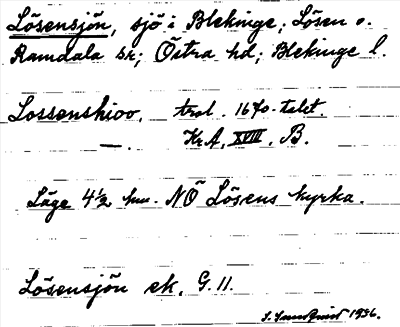 Lösensjön, sjö i Blekinge; Lösen o.
Ramdala sn; Östra hd; Blekinge l.
Lossenshioo. trol. 1670-talet.
— . Kr.A. XVIII. B.
Läge 4½ km. NÖ Lösens kyrka.
Lösensjön ek. G. 11.
1936.